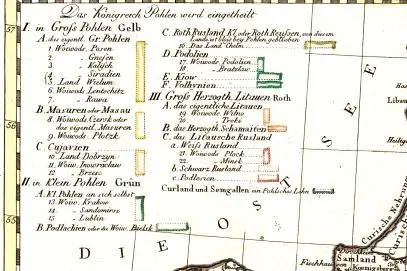 Das Königreich Pohlen wird eingetheilt
I. in Groß Pohlen Gelb
A. das eigentl. Gr. Pohlen
1. Woiwods. Posen
2. " Gnesen
3. " Kalisch
4. " Siradien
5. Land Wielun
6. Woiwods Lentschitz
7. " Rawa
B. Masuren oder Masau
8. Woiwods Czersk oder
das eigentl. Masuren
9. Woiwods Plotzk
C. Cujavien
10. Land Dobrzyn
11. Woiw. Inowroclaw
12. " Brzesc
II. in Klein Pohlen Grün
A. Kl Pohlen an sich selbst
13. Woiw. Krakow
14. " Sandomirs
15. " Lublin
B. Podlachien oder die Woiw. Bielsk
C. Roth Rusland oder Roth Reussen, von diesem
Lande ist blos bey Pohlen geblieben
16. Das Land Chelm
D. Podolien
17. Woiwods Podolien
18. " Bratzlaw
E. Kiow
F. Volhynien
III. Gros Herzogth Litauen Roth
A. das eigentliche Litauen
19. Woiwods Wilno
20. " Troki
B. das Herzogth Schamaiten
C. das Litausche Rusland
a. Weiß Rusland
21. Woiwods Plock
22. " Minsk
b. Schwarz Rusland
c. Podlesien
Curland und Semgallen ein Pohlisches Lehn
57
56
55
DIE OST SEE
Curische Nehrung
Curische
Samland
Königsberg
Fischhausen
Liba